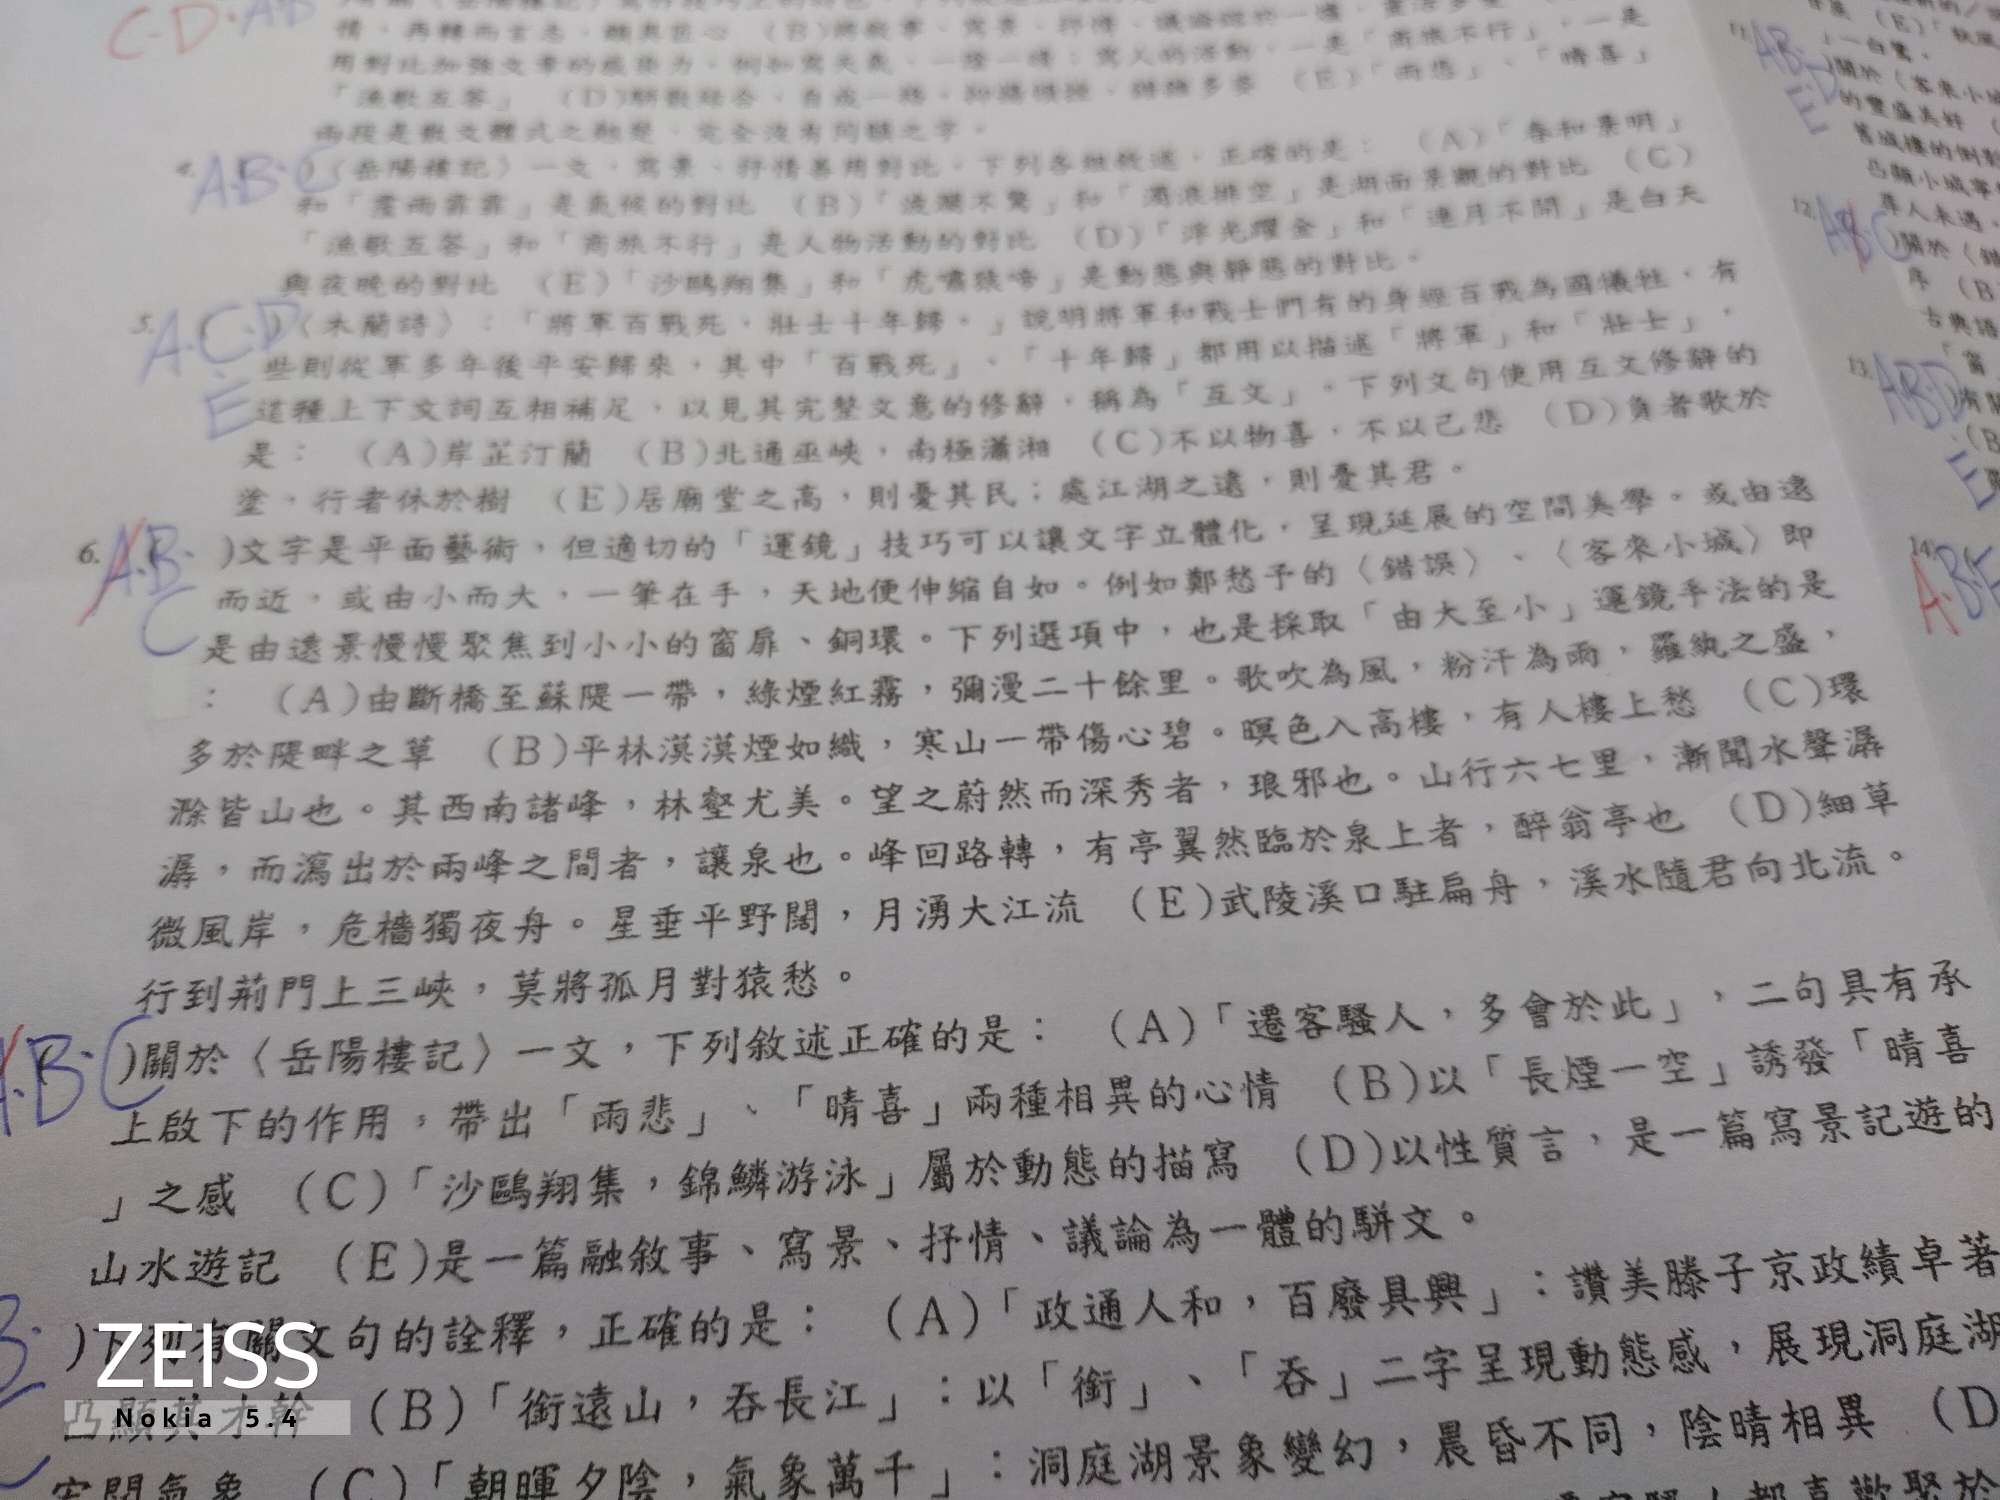 C.D.AB
用對比加強文章的感染力,例如寫天氣,一陰一晴;寫人的活動,一是「商旅不行」,一是
「漁歌互答」 (D)駢散結合,自成一格 (E)「雨悲」、「晴喜」
兩段是散文體式之駢聚,完全沒有同韻之字。
4. A.B.C )〈岳陽樓記〉一文,寫景、抒情善用對比,下列各組敘述,正確的是: (A)「春和景明」
和「霪雨霏霏」是氣候的對比 (B)「波瀾不驚」和「濁浪排空」是湖面景觀的對比 (C)
「漁歌互答」和「商旅不行」是人物活動的對比 (D)「浮光躍金」和「連月不開」是白天
與夜晚的對比 (E)「沙鷗翔集」和「虎嘯猿啼」是動態與靜態的對比。
5. A.C.D E )〈木蘭詩〉:「將軍百戰死,壯士十年歸。」說明將軍和戰士們有的身經百戰為國犧牲,有
些則從軍多年後平安歸來,其中「百戰死」、「十年歸」都用以描述「將軍」和「壯士」,
這種上下文詞互相補足,以見其完整文意的修辭,稱為「互文」。下列文句使用互文修辭的
是: (A)岸芷汀蘭 (B)北通巫峽,南極瀟湘 (C)不以物喜,不以己悲 (D)負者歌於
塗,行者休於樹 (E)居廟堂之高,則憂其民;處江湖之遠,則憂其君。
6. A.B. C )文字是平面藝術,但適切的「運鏡」技巧可以讓文字立體化,呈現延展的空間美學。或由遠
而近,或由小而大,一筆在手,天地便伸縮自如。例如鄭愁予的〈錯誤〉、〈客來小城〉即
是由遠景慢慢聚焦到小小的窗扉、銅環。下列選項中,也是採取「由大至小」運鏡手法的是
: (A)由斷橋至蘇隄一帶,綠煙紅霧,彌漫二十餘里。歌吹為風,粉汗為雨,羅紈之盛,
多於隄畔之草 (B)平林漠漠煙如織,寒山一帶傷心碧。暝色入高樓,有人樓上愁 (C)環
滁皆山也。其西南諸峰,林壑尤美。望之蔚然而深秀者,琅邪也。山行六七里,漸聞水聲潺
潺,而瀉出於兩峰之間者,讓泉也。峰回路轉,有亭翼然臨於泉上者,醉翁亭也 (D)細草
微風岸,危檣獨夜舟。星垂平野闊,月湧大江流 (E)武陵溪口駐扁舟,溪水隨君向北流。
行到荊門上三峽,莫將孤月對猿愁。
A.B.C )關於〈岳陽樓記〉一文,下列敘述正確的是: (A)「遷客騷人,多會於此」,二句具有承
上啟下的作用,帶出「雨悲」、「晴喜」兩種相異的心情 (B)以「長煙一空」誘發「晴喜
」之感 (C)「沙鷗翔集,錦鱗游泳」屬於動態的描寫 (D)以性質言,是一篇寫景記遊的
山水遊記 (E)是一篇融敘事、寫景、抒情、議論為一體的駢文。
)下列有關文句的詮釋,正確的是: (A)「政通人和,百廢具興」:讚美滕子京政績卓著
凸顯其才幹 (B)「銜遠山,吞長江」:以「銜」、「吞」二字呈現動態感,展現洞庭湖
宏闊氣象 (C)「朝暉夕陰,氣象萬千」:洞庭湖景象變幻,晨昏不同,陰晴相異 (D
11. AB.D E
)關於〈客來小城
的豐盛美好
舊城樓的倒影
凸顯小城寧
12. AB.C )關於〈錯
序 (B
古典語
13. AB.D E
14. A.B.E
ZEISS
Nokia 5.4